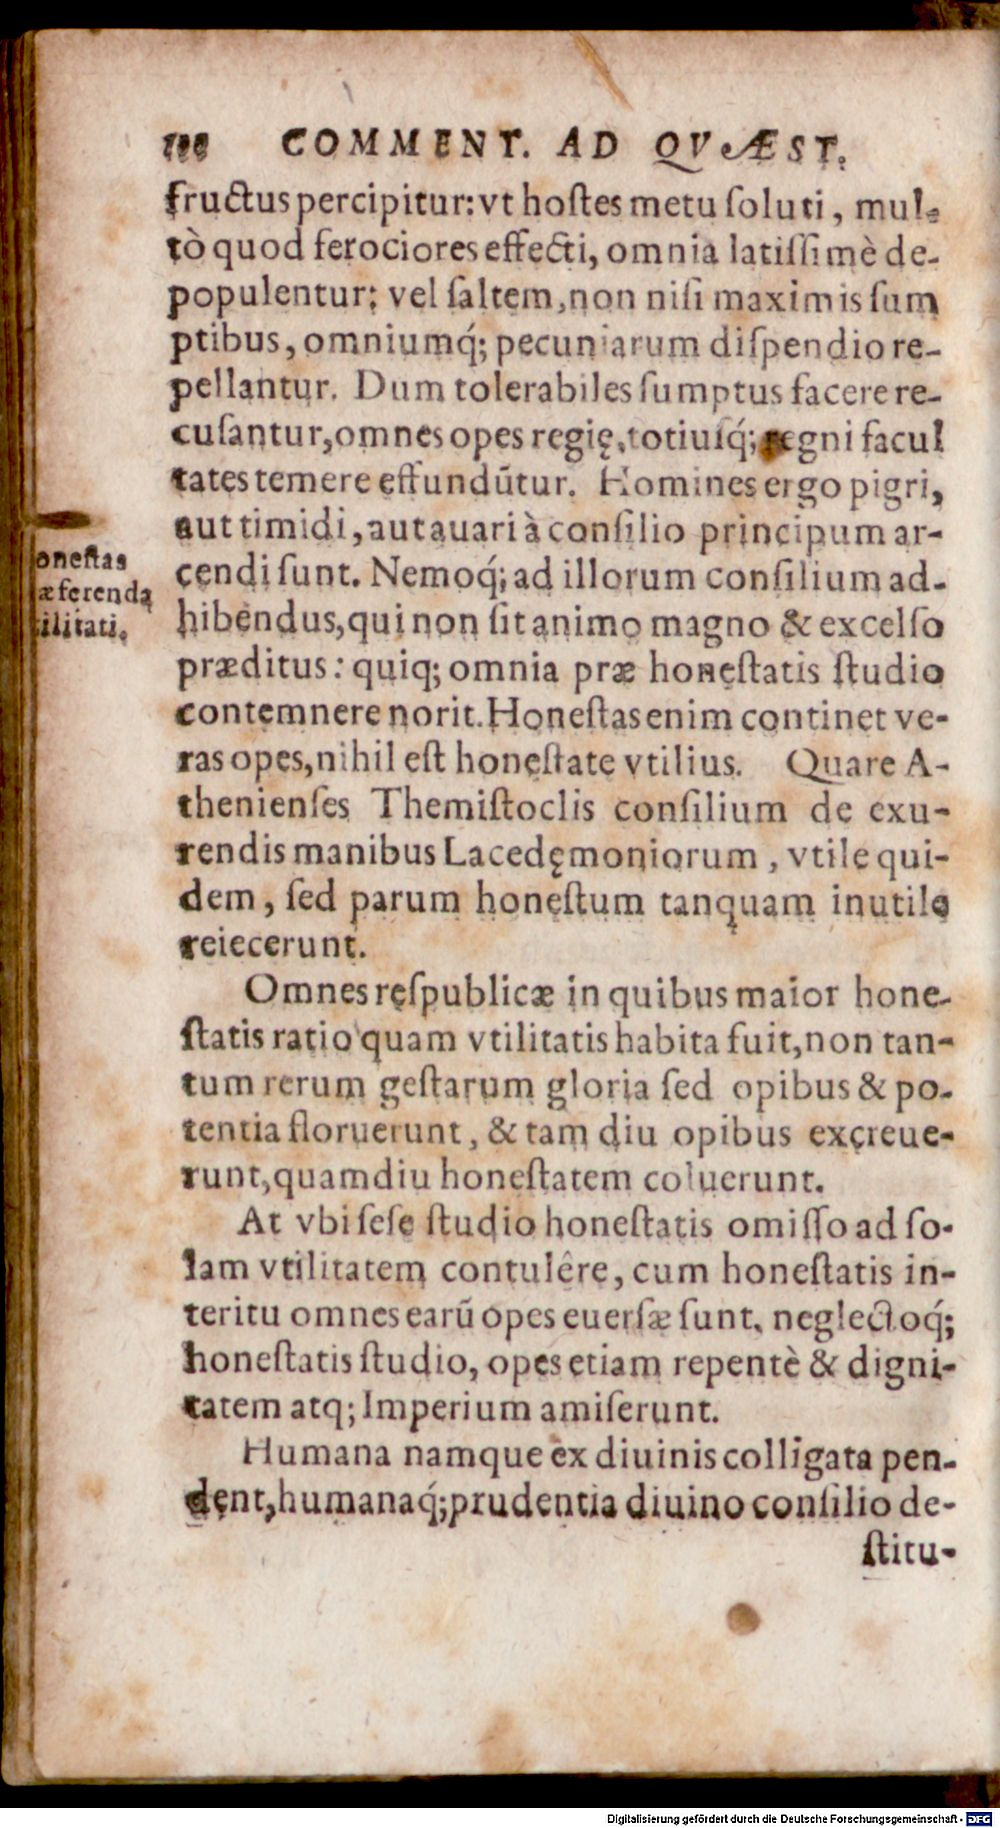 COMMENT. AD QVÆST.
fructus percipitur: vt hoſtes metu ſoluti, mul-
tò quod ferociores effecti, omnia latiſſimè de-
populentur: vel ſaltem, non niſi maximis ſum
ptibus, omniumq́; pecuniarum diſpendio re-
pellantur. Dum tolerabiles ſumptus facere re-
cuſantur, omnes opes regię, totiuſq́; regni facul
tates temere effundūtur. Homines ergo pigri,
aut timidi, aut auari à conſilio principum ar-
cendi ſunt. Nemoq́; ad illorum conſilium ad-
hibendus, qui non ſit animo magno & excelſo
præditus: quiq; omnia præ honeſtatis ſtudio
contemnere norit. Honeſtas enim continet ve-
ras opes, nihil eſt honeſtate vtilius. Quare A-
thenienſes Themiſtoclis conſilium de exu-
rendis manibus Lacedęmoniorum, vtile qui-
dem, ſed parum honeſtum tanquam inutile
reiecerunt.
oneſtas
æferenda
ilitati.
Omnes reſpublicæ in quibus maior hone-
ſtatis ratio quam vtilitatis habita fuit, non tan-
tum rerum geſtarum gloria ſed opibus & po-
tentia floruerunt, & tam diu opibus excreue-
runt, quamdiu honeſtatem coluerunt.
At vbi ſeſe ſtudio honeſtatis omiſſo ad ſo-
lam vtilitatem contulêre, cum honeſtatis in-
teritu omnes earū opes euerſæ ſunt, neglectoq́;
honeſtatis ſtudio, opes etiam repentè & digni-
tatem atq; Imperium amiſerunt.
Humana namque ex diuinis colligata pen-
dent, humanaq́; prudentia diuino conſilio de-
ſtitu-
Digitalisierung gefördert durch die Deutsche Forschungsgemeinschaft - DFG